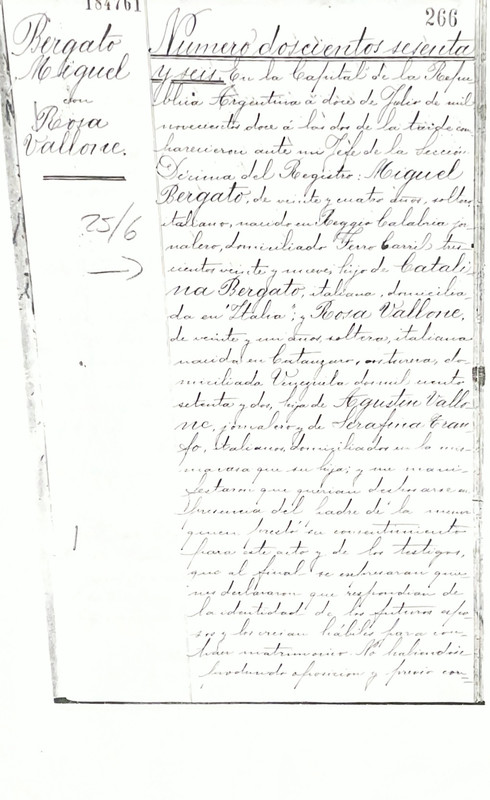 184761
266
Bergato
Miguel
con
Rosa
Vallone.
25/6
Numero doscientos sesenta
y seis. En la Capital de la Repu-
blica Argentina á doce de Julio de mil
novecientos doce á las dos de la tarde com
parecieron ante mi Jefe de la Seccion
Décima del Registro: Miguel
Bergato, de veinte y cuatro años, soltero,
italiano, nacido en Reggio Calabria jor
nalero, domiciliado Ferro Carril tres
cientos veinte y nueve, hijo de Catali
na Bergato, italiana, domicilia-
da en Italia; y Rosa Vallone,
de veinte y un años, soltera, italiana
nacida en Catanzaro, costurera, do-
miciliada dosmil ciento
setenta y dos, hija de Agustin Vallo
ne, jornalero y de Serafina
italianos, domiciliados en la mis-
ma casa que su hija; y me mani-
festaron que querian desposarse en
presencia del padre de la menor
quien prestó su consentimiento
para este acto y de los testigos,
que al final se expresaran quie-
nes declararon que respondian de
la identidad de los futuros espo-
sos y los creian hábiles para con-
traer matrimonio. No habiendose
producido oposicion y previo con-